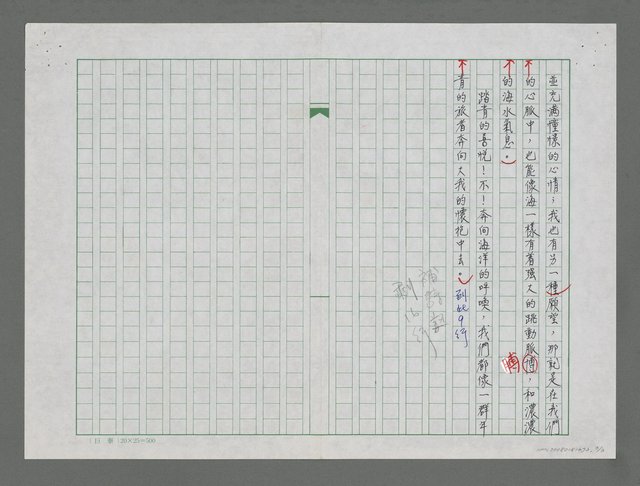 並充滿憧憬的心情；我也有另一種願望，那就是在我們
的心脈中，也能像海一樣有著强大的跳動脈博，和濃濃
的海水氣息。
踏青的喜悅！不！奔向海洋的呼喚，我們都像一群年
青的旅者奔向大我的懷抱中去。
到此9行
搏
剩
16行
（日華）20×25=500